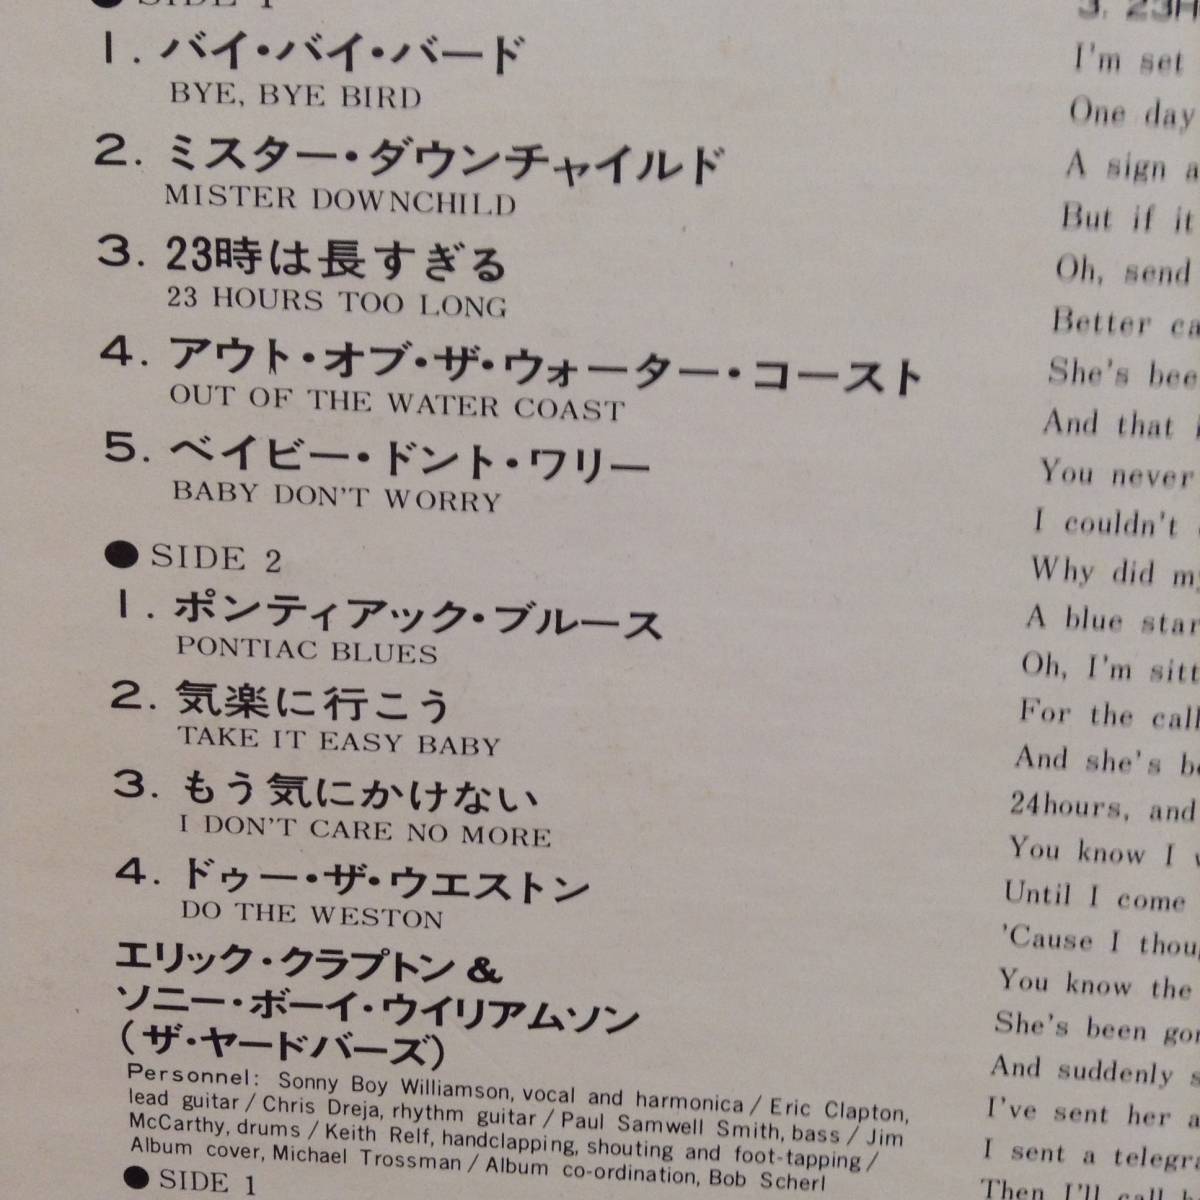 ● SIDE 1
1. バイ・バイ・バード
BYE, BYE BIRD
2. ミスター・ダウンチャイルド
MISTER DOWNCHILD
3. 23時は長すぎる
23 HOURS TOO LONG
4. アウト・オブ・ザ・ウォーター・コースト
OUT OF THE WATER COAST
5. ベイビー・ドント・ワリー
BABY DON'T WORRY
● SIDE 2
1. ポンティアック・ブルース
PONTIAC BLUES
2. 気楽に行こう
TAKE IT EASY BABY
3. もう気にかけない
I DON'T CARE NO MORE
4. ドゥー・ザ・ウエストン
DO THE WESTON
エリック・クラプトン &
ソニー・ボーイ・ウイリアムソン
(ザ・ヤードバーズ)
Personnel: Sonny Boy Williamson, vocal and harmonica / Eric Clapton,
lead guitar / Chris Dreja, rhythm guitar / Paul Samwell Smith, bass / Jim
McCarthy, drums / Keith Relf, handclapping, shouting and foot-tapping /
Album cover, Michael Trossman / Album co-ordination, Bob Scherl
● SIDE 1
3. 23H
I'm set
One day
A sign
But if it
Oh, send
Better
She's
And that
You never
I couldn't
Why did
A blue star
Oh, I'm
For the
And she's
24hours, and
You know I
Until I come
'Cause I
You know the
She's been
And suddenly
I've sent her
I sent a
Then I'll call